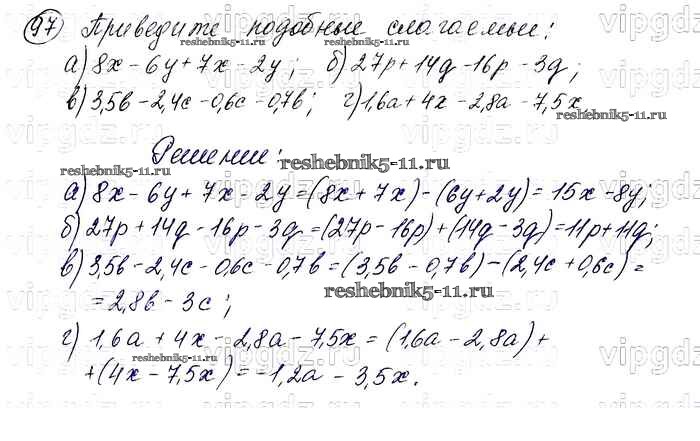 97 Приведите подобные слагаемые:
reshebnik5-11.ru
а) 8x - 6y + 7x - 2y; б) 27p + 14q - 16p - 3q;
в) 3,5b - 2,4c - 0,6c - 0,7b; г) 1,6a + 4x - 2,8a - 7,5x
reshebnik5-11.ru reshebnik5-11.ru
vipgdz.ru vipgdz.ru vipgdz.ru vipgdz.ru
Решение: reshebnik5-11.ru
reshebnik5-11.ru
а) 8x - 6y + 7x - 2y = (8x + 7x) - (6y + 2y) = 15x - 8y;
б) 27p + 14q - 16p - 3q = (27p - 16p) + (14q - 3q) = 11p + 11q;
в) 3,5b - 2,4c - 0,6c - 0,7b = (3,5b - 0,7b) - (2,4c + 0,6c) =
= 2,8b - 3c; reshebnik5-11.ru
г) 1,6a + 4x - 2,8a - 7,5x = (1,6a - 2,8a) +
reshebnik5-11.ru
+ (4x - 7,5x) = -1,2a - 3,5x.